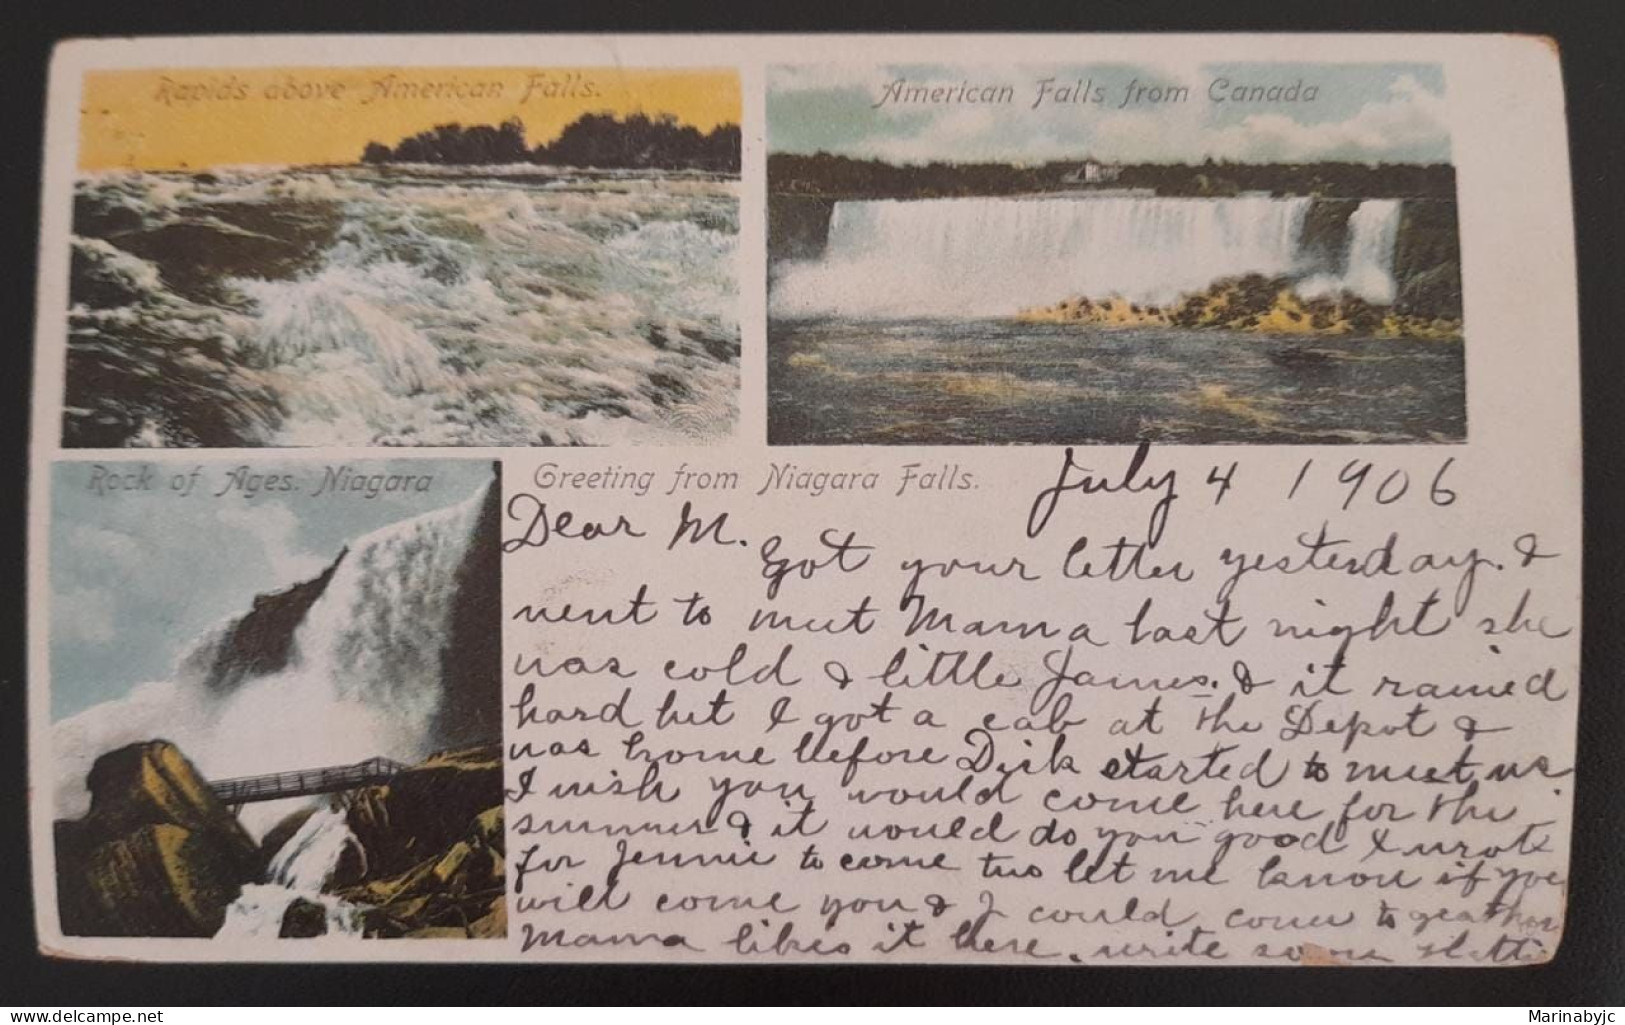 Rapids above American Falls.
American Falls from Canada
Rock of Ages. Niagara
Greeting from Niagara Falls.
July 4 1906
Dear M.
Got your letter yesterday. &
went to meet Mama last night she
was cold & little James. & it rained
hard but I got a cab at the Depot &
was home before Dick started to meet us
I wish you would come here for the
summer & it would do you good I wrote
for Jennie to come two let me know if you
will come you & J could come to geather
Mama likes it here. write soon
Marinabyjc